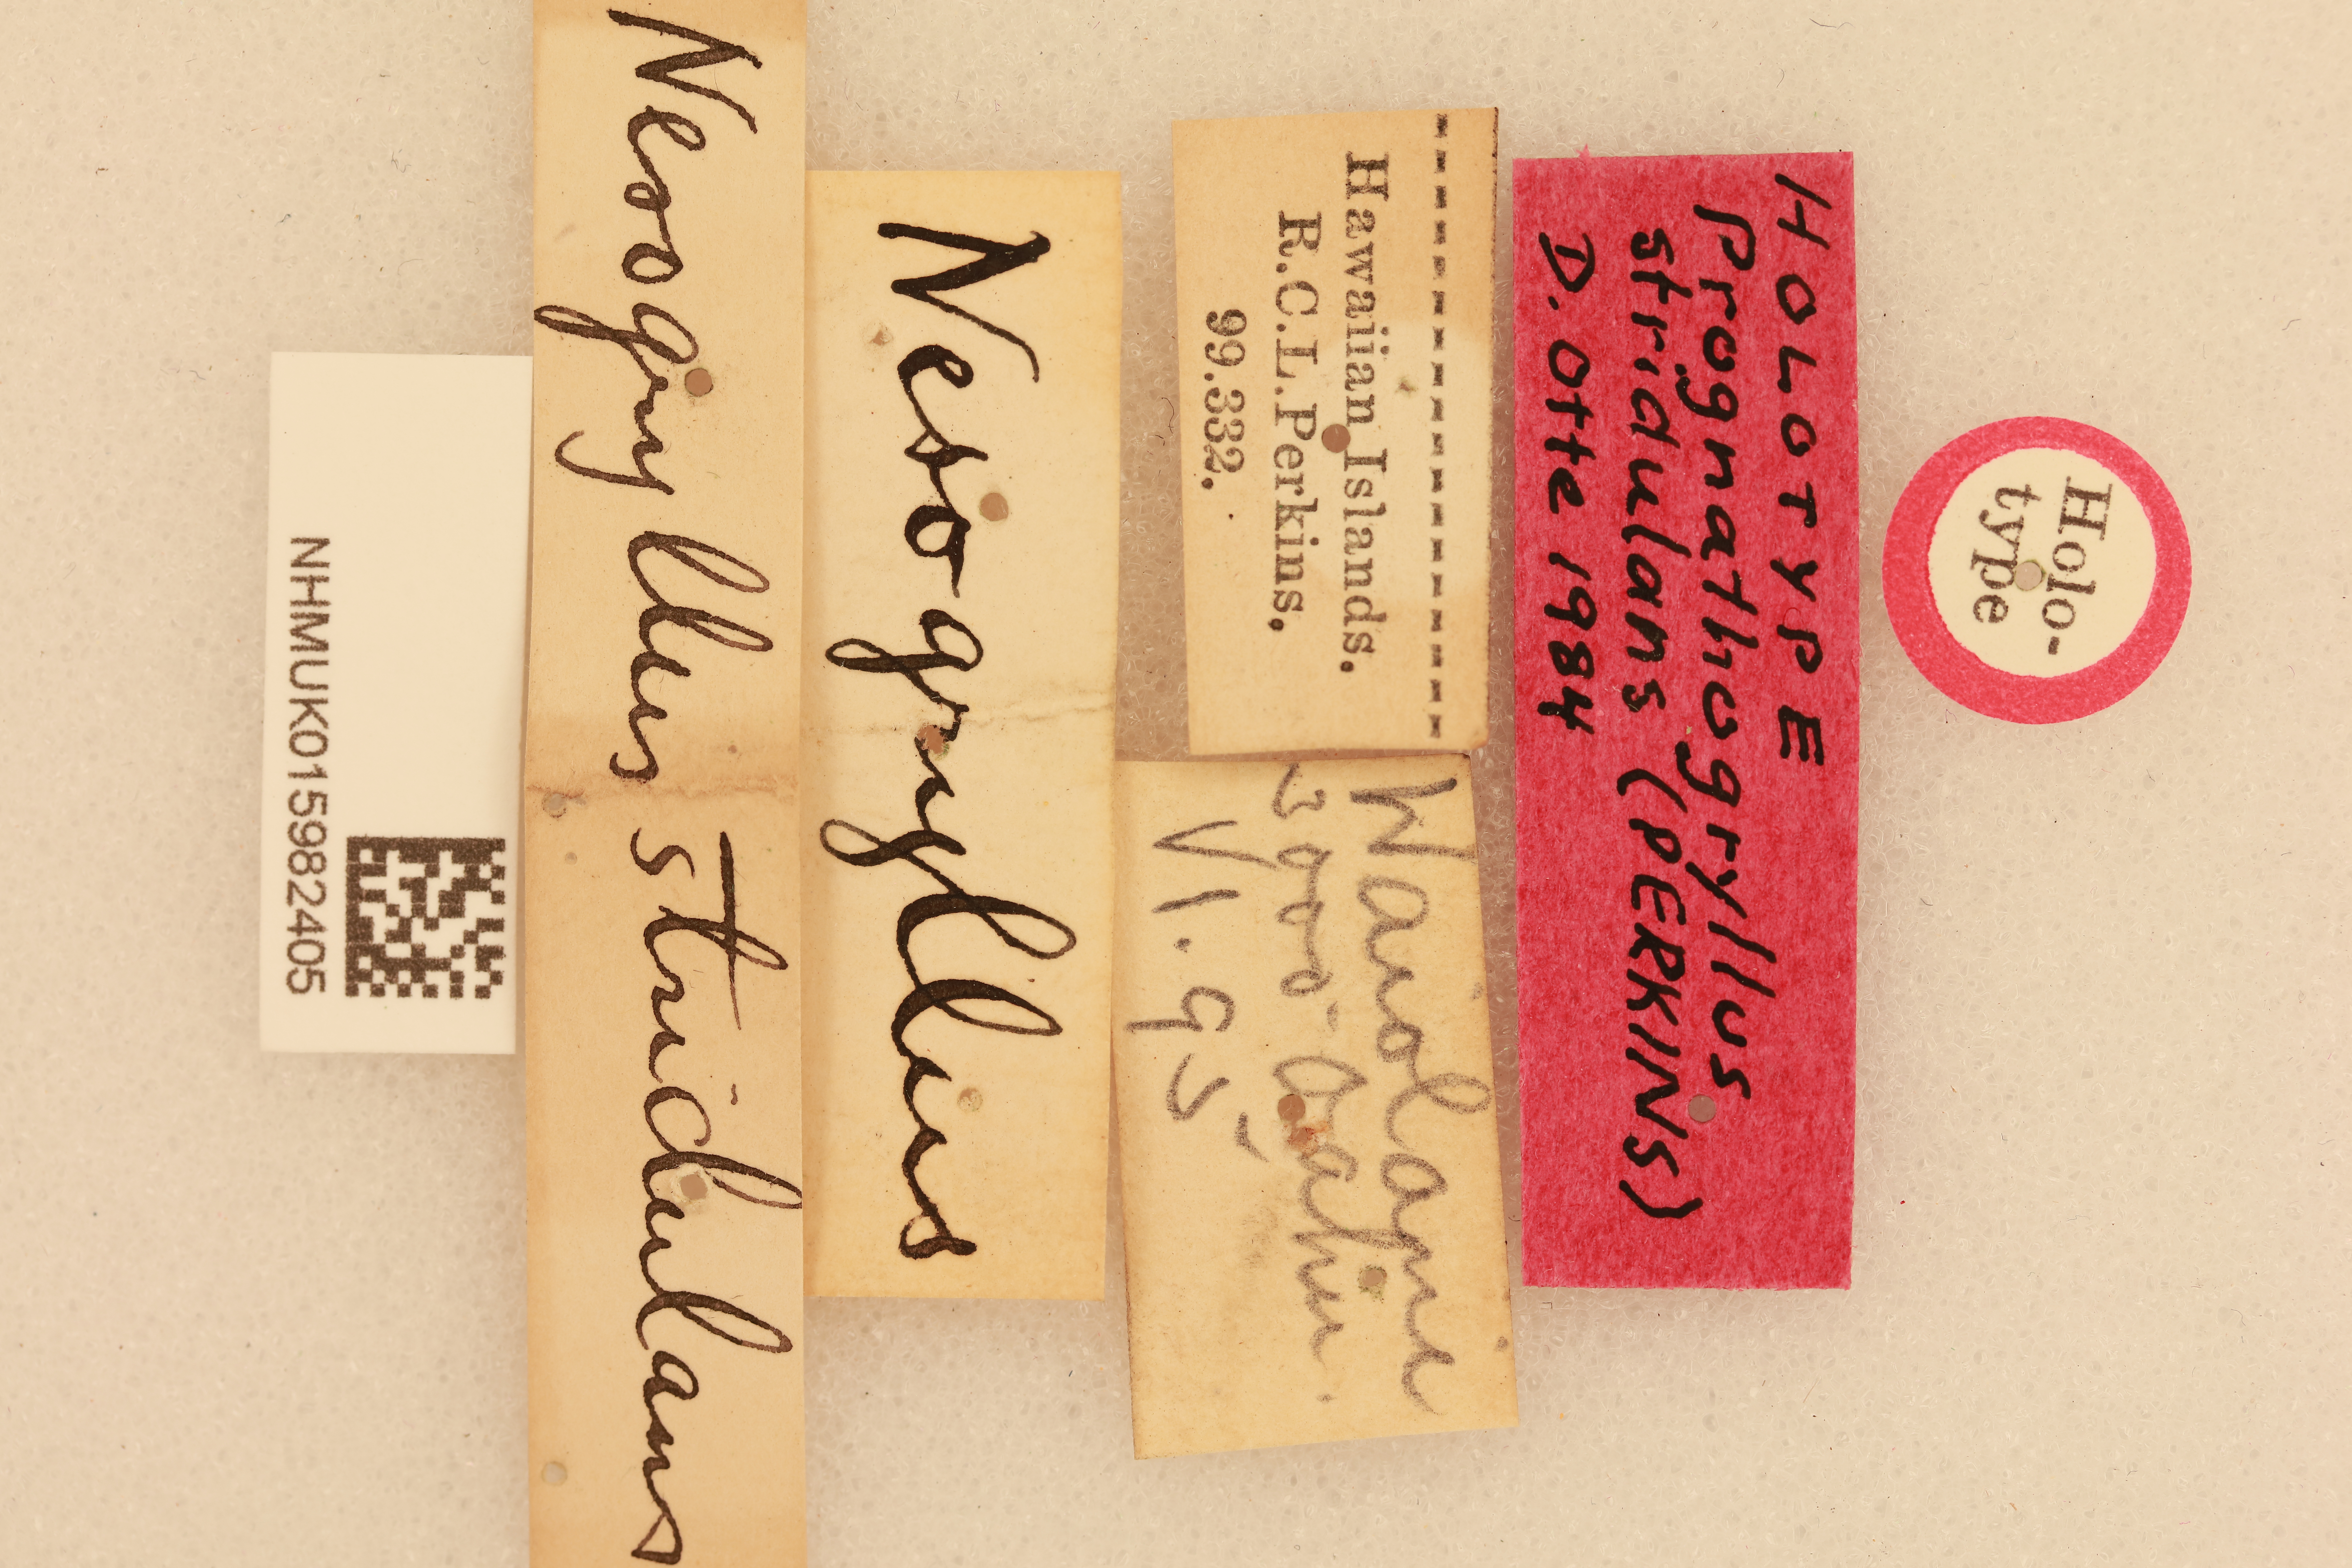 Holo-
type
HOLOTYPE
Prognathogryllus
stridulans (PERKINS)
D. Otte 1984
Hawaiian Islands.
R.C.L.Perkins.
99.332.
Waiolani
3000 Oahu.
VI. 95
Nesogryllus
Nesogryllus stridulans
NHMUK015982405